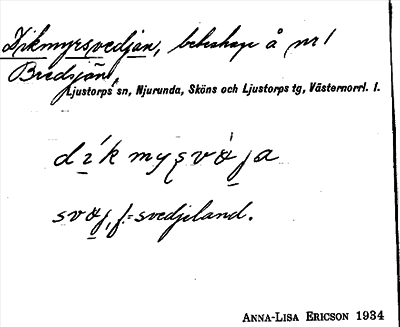 Dikmyrsvedjan, beteshage å nr 1
Bredsjön,
Ljustorps sn, Njurunda, Sköns och Ljustorps tg, Västernorrl. l.
díkmyʂvàja
svaj, f. = svedjeland.
ANNA-LISA ERICSON 1934